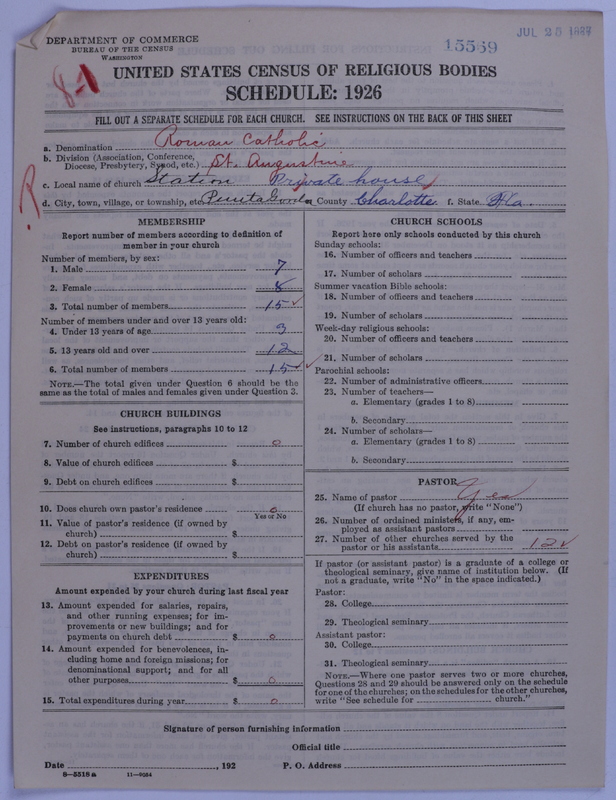 DEPARTMENT OF COMMERCE
BUREAU OF THE CENSUS
WASHINGTON
15569
JUL 25 1927
8-1
UNITED STATES CENSUS OF RELIGIOUS BODIES
SCHEDULE: 1926
FILL OUT A SEPARATE SCHEDULE FOR EACH CHURCH. SEE INSTRUCTIONS ON THE BACK OF THIS SHEET
a. Denomination Roman Catholic
b. Division (Association, Conference, Diocese, Presbytery, Synod, etc.) St. Augustine
c. Local name of church Station Private house
R
d. City, town, village, or township, etc. Punta Gorda e. County Charlotte f. State Fla.
MEMBERSHIP
Report number of members according to definition of
member in your church
Number of members, by sex:
1. Male 7
2. Female 8
3. Total number of members 15 ✓
Number of members under and over 13 years old:
4. Under 13 years of age 3
5. 13 years old and over 12
6. Total number of members 15 ✓
NOTE.—The total given under Question 6 should be the
same as the total of males and females given under Question 3.
CHURCH BUILDINGS
See instructions, paragraphs 10 to 12
7. Number of church edifices 0
8. Value of church edifices $
9. Debt on church edifices $
10. Does church own pastor's residence 0
Yes or No
11. Value of pastor's residence (if owned by
church) $
12. Debt on pastor's residence (if owned by
church) $
EXPENDITURES
Amount expended by your church during last fiscal year
13. Amount expended for salaries, repairs,
and other running expenses; for im-
provements or new buildings; and for
payments on church debt $ 0
14. Amount expended for benevolences, in-
cluding home and foreign missions; for
denominational support; and for all
other purposes $ 0
15. Total expenditures during year $ 0
CHURCH SCHOOLS
Report here only schools conducted by this church
Sunday schools:
16. Number of officers and teachers
17. Number of scholars
Summer vacation Bible schools:
18. Number of officers and teachers
19. Number of scholars
Week-day religious schools:
20. Number of officers and teachers
21. Number of scholars
Parochial schools:
22. Number of administrative officers
23. Number of teachers—
a. Elementary (grades 1 to 8)
b. Secondary
24. Number of scholars—
a. Elementary (grades 1 to 8)
b. Secondary
PASTOR
25. Name of pastor Yes
(If church has no pastor, write "None")
26. Number of ordained ministers, if any, em-
ployed as assistant pastors
27. Number of other churches served by the
pastor or his assistants 12 ✓
If pastor (or assistant pastor) is a graduate of a college or
theological seminary, give name of institution below. (If
not a graduate, write "No" in the space indicated.)
Pastor:
28. College
29. Theological seminary
Assistant pastor:
30. College
31. Theological seminary
NOTE.—Where one pastor serves two or more churches,
Questions 28 and 29 should be answered only on the schedule
for one of the churches; on the schedules for the other churches,
write "See schedule for church."
Signature of person furnishing information
Official title
Date , 192 P. O. Address
8-5518a 11-9034